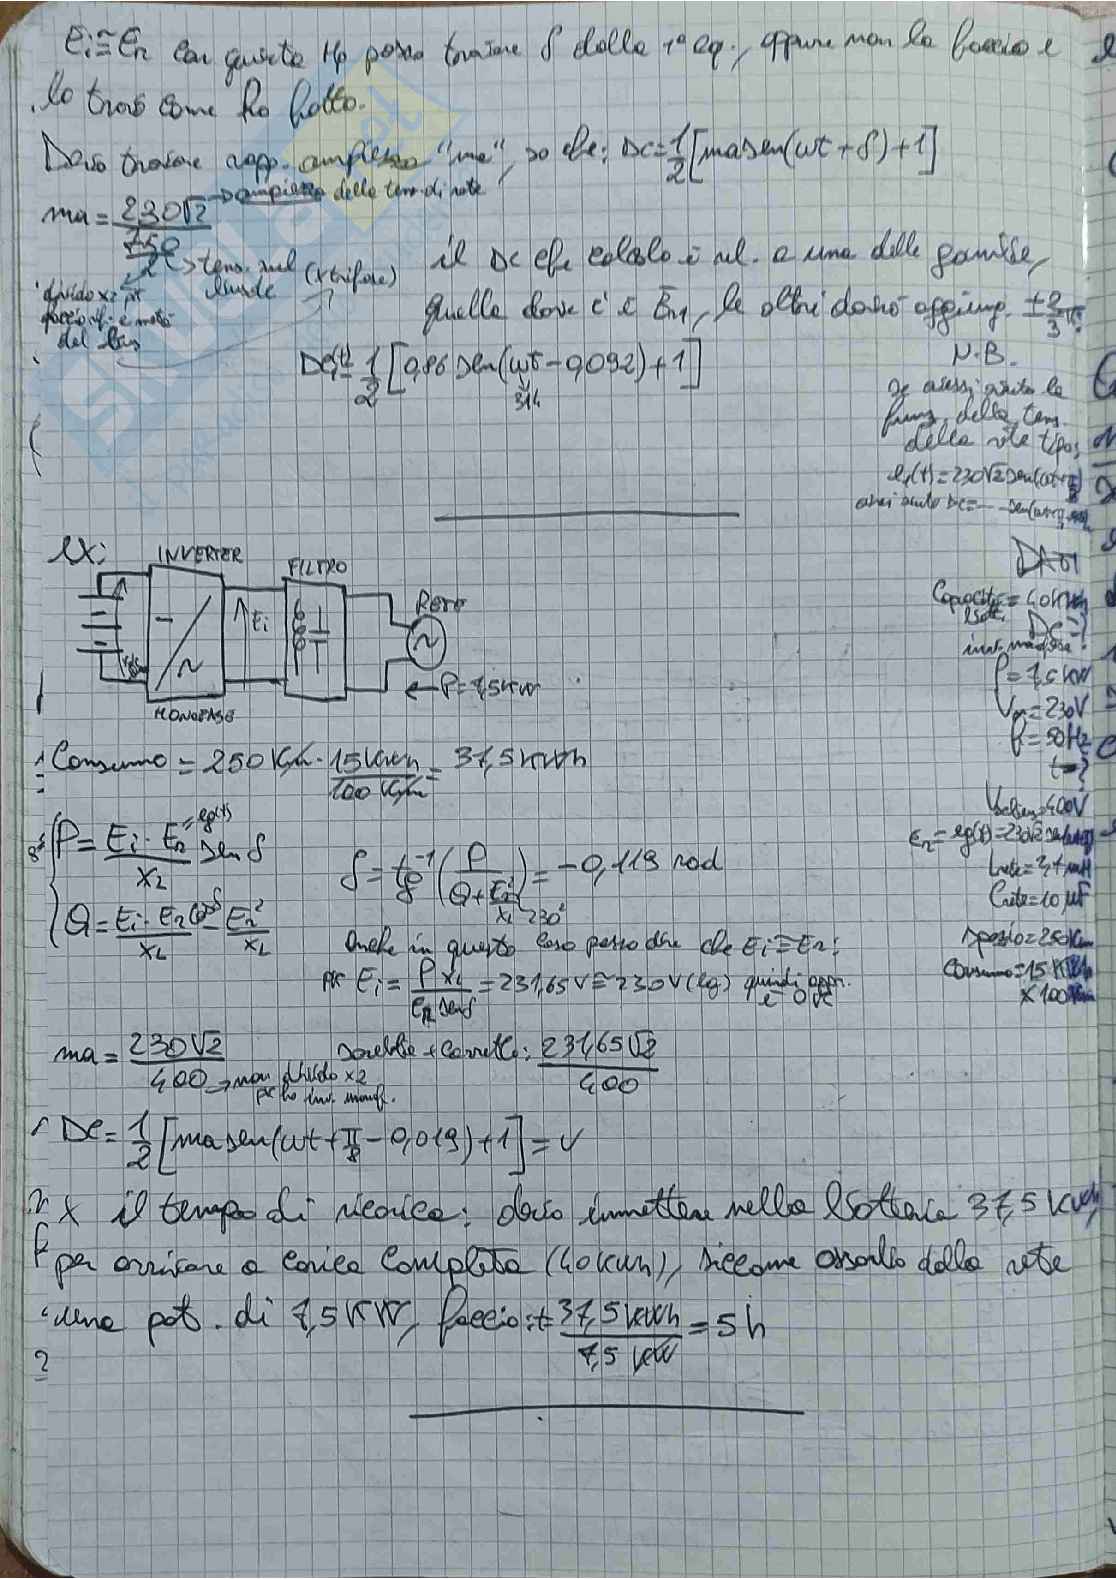 Ei ≅ Er con questa Hp posso trovare δ dalla 1ª eq., oppure non la faccio e
lo trovo come ho fatto.
Devo trovare rapp. ampiezza "ma", so che: DC = 1/2 [ma sen(ωt + δ) + 1]
ma = 230√2 / (750/2) → ampiezza della tens. di rete
→ tens. sul (x trifase)
divido x2 pk
faccio rif. a metà
del bus
il DC che calcolo è rel. a una delle gambe,
quella dove c'è Er1, le altre dovrò aggiung. ± 2/3 π.
DC1(t) = 1/2 [0,86 sen(ωt - 0,092) + 1]
314
N.B.
se avessi avuto la
funz. della tens.
della rete tipo:
avrei avuto DC =
ex:
INVERTER
FILTRO
RETE
Ei
← P = 7,5 kW
MONOFASE
DATI
Capacità batt. = 40 kWh
DC = ?
inv. monofase
P = 7,5 kW
Vr = 230V
f = 50Hz
t = ?
= 400V
Er = eg(t) = 230√2
Lrete = 3,7 mH
Crete = 10 μF
Spazio = 250 km
Consumo = 15 kWh
x 100 km
Consumo = 250 Km · 15 kWh / 100 Km = 37,5 kWh
P = Ei · Er / XL sen δ = eg(t)
Q = Ei · Er cos δ / XL - Er² / XL
δ = tg⁻¹ (P / (Q + Er²/XL)) = -0,119 rad
230²
Anche in questo caso posso dire che Ei ≅ Er:
pk Ei = P XL / (Er sen δ) = 231,65 V ≅ 230 V (eg) quindi appr.
è OK
ma = 230√2 / 400 → non divido x2
pk ho inv. monof.
sarebbe + corretto: 231,65√2 / 400
DC = 1/2 [ma sen(ωt + π/8 - 0,019) + 1] = ✓
x il tempo di ricarica: devo immettere nella batteria 37,5 kWh
per arrivare a carica completa (40 kWh), siccome assorbo dalla rete
una pot. di 7,5 kW, faccio: t = 37,5 kWh / 7,5 kW = 5 h